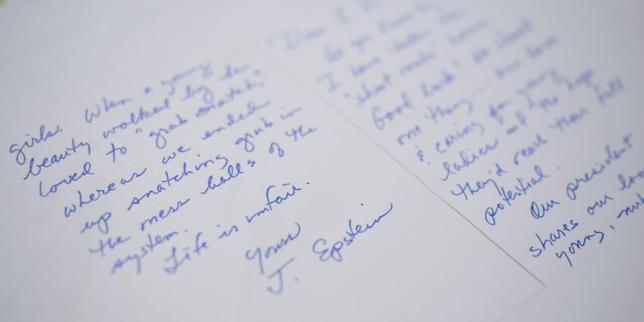 girls. When a young
beauty walked by he
loved to "grab snatch,"
whereas we ended
up snatching grub in
the mess halls of the
system.
Life is unfair.
Yours
J. Epstein
Dear
As you know by
I have taken the
"short route" home.
Good luck! We shared
one thing... our love
& caring for young
ladies and the hope
they'd reach their full
potential.
Our president
shares our
young,